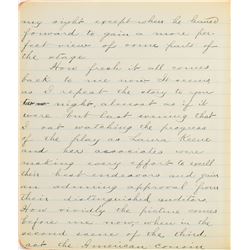 my sight except when he leaned
forward to gain a more per-
fect view of some parts of
the stage.
How fresh it all comes
back to me now. It seems
as I repeat the story to you
to-night, almost as if it
were but last evening that
I sat watching the progress
of the play as Laura Keene
and her associates were
making every effort to excell
their best endeavors and gain
an admiring approval from
their distinguished auditors.
How vividly the picture comes
before me now when in the
second scene of the third
act the American cousin